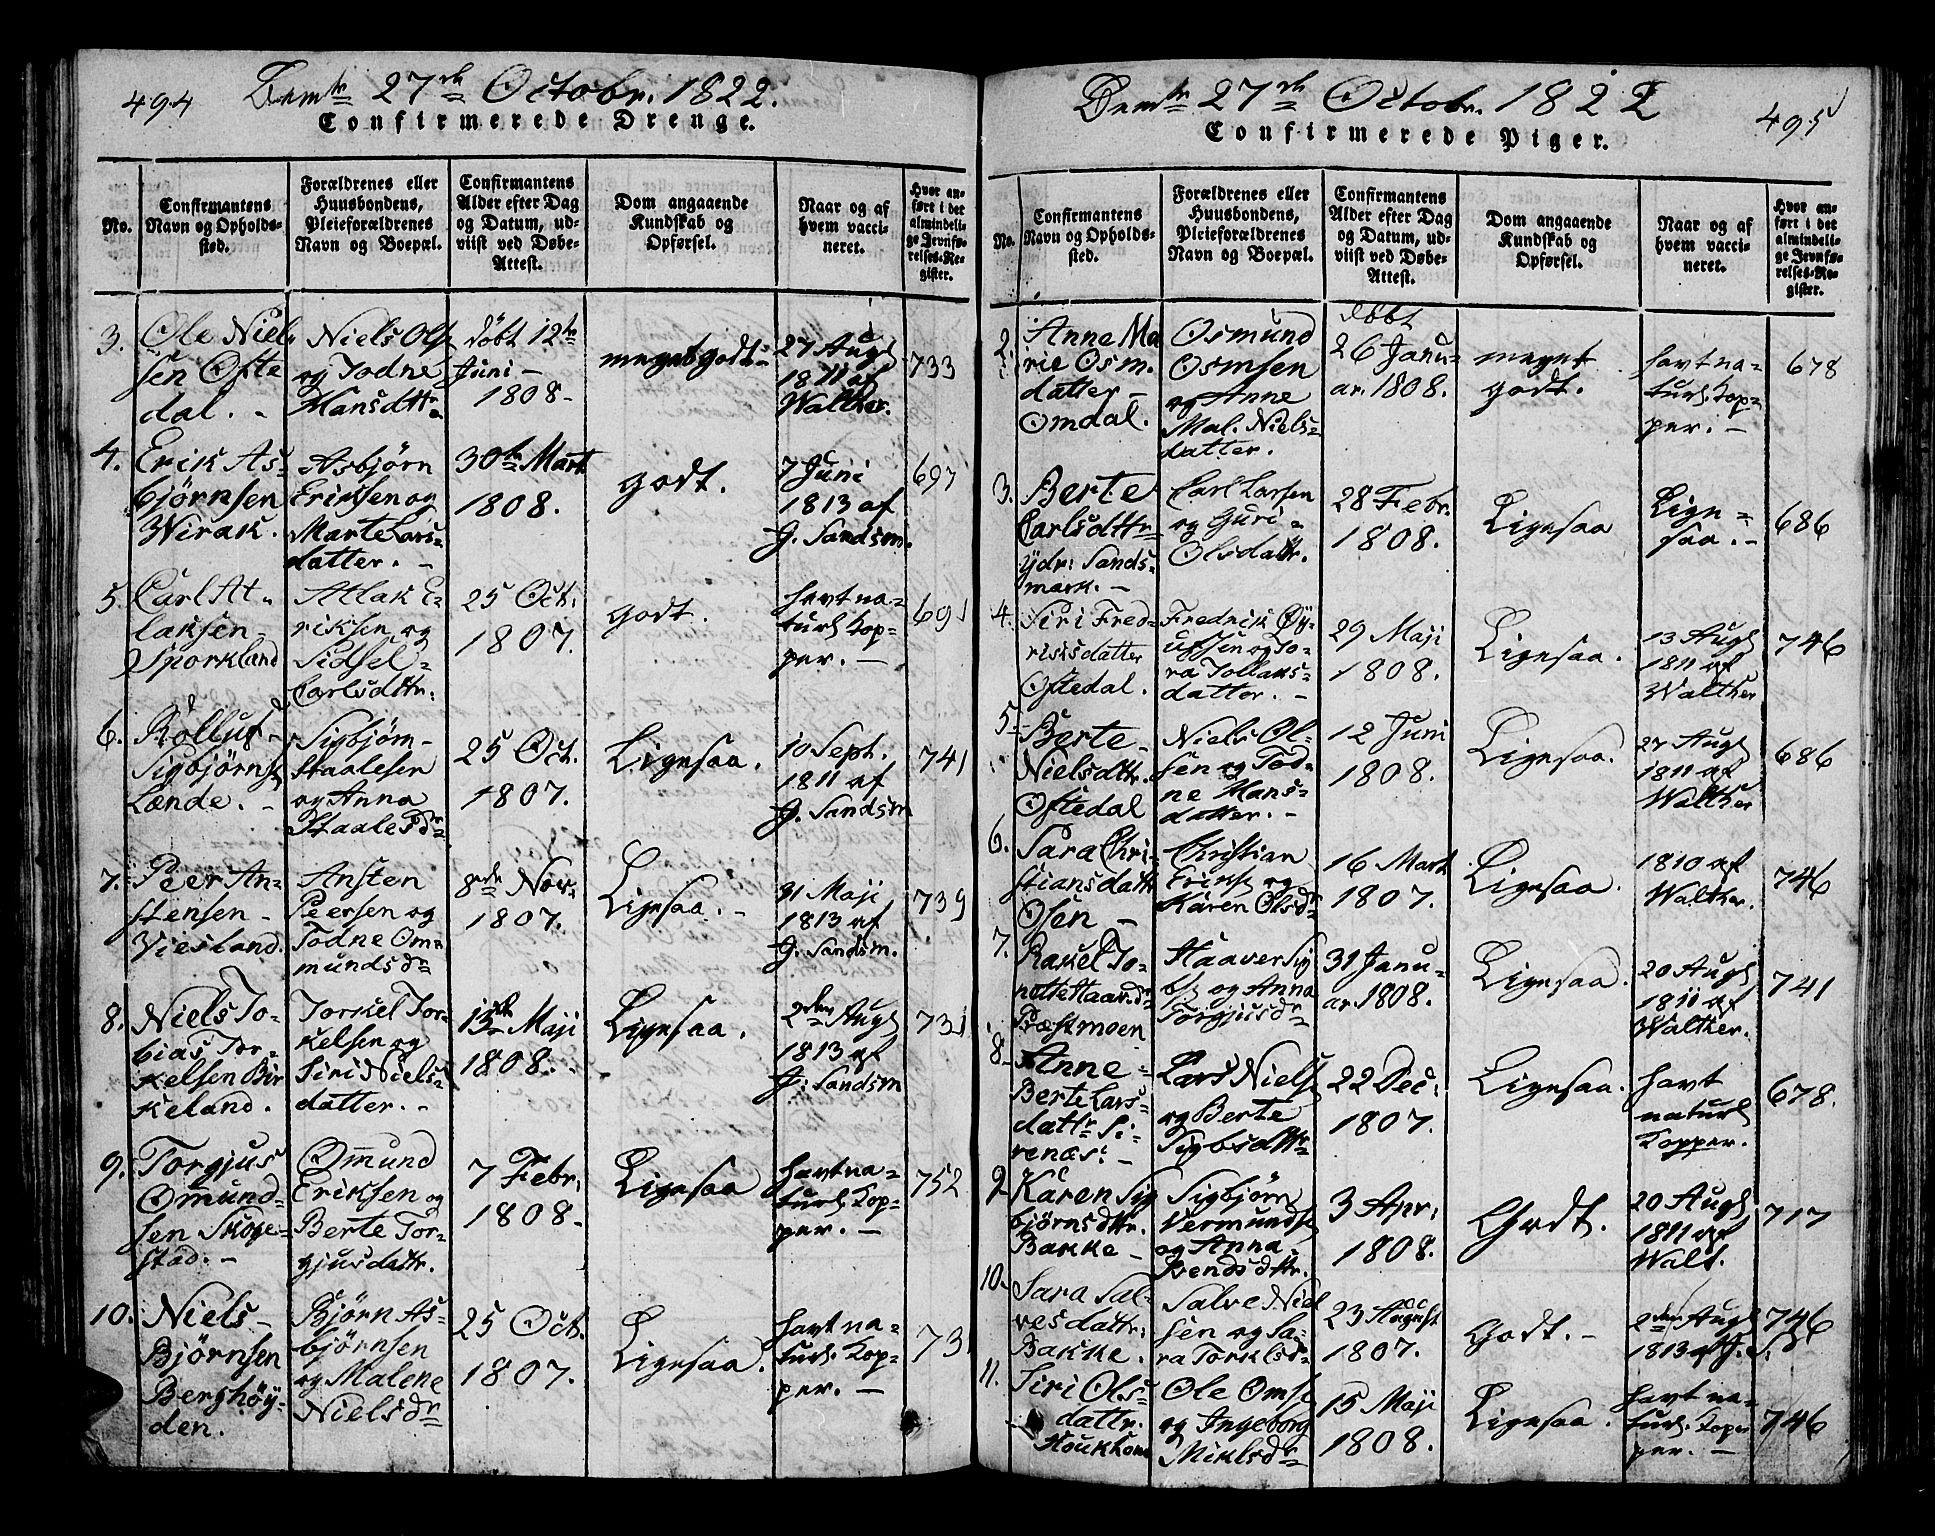 494
Dem 27de Octobr. 1822.
Confirmerede Drenge.
No.
Confirmantens
Navn og Opholds-
sted.
Forældrenes eller
Huusbondens,
Pleieforældrenes
Navn og Boepæl.
Confirmantens
Alder efter Dag
og Datum, ud-
viist ved Døbe-
Attest.
Dom angaaende
Kundskab og
Opførsel.
Naar og af
hvem vacci-
neret.
Hvor an-
ført i det
almindeli-
ge Jevnfø-
relses-Re-
gister.
3.
Ole Niel-
sen Ofte
dal. -
Niels Ols
og Todne
Hansdttr
døbt 12te
Juni -
1808-
meget godt-
27 Augt
1811 af
Walther.
733
4.
Erik As-
bjørnsen
Wirak.
Asbjørn
Eriksen og
Marte Lars-
datter. -
30te Mart
1808.
godt.
7 Juni
1813 af
J. Sandsm.
697
5
Carl At-
laksen -
Sporkland
Atlak E-
riksen og
Sidsel -
Carlsdttr.
25 Oct.
1807.
godt.
havt na-
turl. Kop-
per. -
691
6.
Rølluf -
Sigbjørns
Lænde. -
Sigbjørn-
Staalesen
og Anna
Staalesdr
25 Oct.
1807.
Ligesaa.
10 Sept.
1811 af
J. Sandsm
741
7.
Peer An-
stensen -
Viesland.
Ansten
Peersen og
Todne Om-
mundsdr
8de Nov.
1807.
Ligesaa. -
31 Maji
1813 af
J. Sandsm.
739
8.
Niels To-
bias Tor-
kelsen Bir
keland.
Torkel Tor-
kelsen og
Siri Niels-
datter. -
13de Maji
1808.
Ligesaa.
2den Augt
1813 af
J. Sandsm
731
9.
Torgjus
Omund-
sen Skoge-
stad. -
Omund
Eriksen og
Berte Tor-
gjusdattr.
7 Febr.
1808-
Ligesaa
havt na-
turl. Kop-
per. -
752
10.
Niels -
Bjørnsen
Berghøy-
den.
Bjørn As-
bjørnsen
og Malene
Nielsdr
25 Oct.
1807.
Ligesaa.
havt na-
turl. Kop-
per. -
731
Dem 27de Octobr. 1822
495
Confirmerede Piger.
No.
Confirmantens
Navn og Opholds-
sted.
Forældrenes eller
Huusbondens,
Pleieforældrenes
Navn og Boepæl.
Confirmantens
Alder efter Dag
og Datum, ud-
viist ved Døbe-
Attest.
Dom angaaende
Kundskab og
Opførsel.
Naar og af
hvem vacci-
neret.
Hvor an-
ført i det
almindeli-
ge Jevnfø-
relses-Re-
gister.
2.
Anne Ma
rie Osm.
datter -
Omdal.
Osmund
Osmsen
og Anne
Mal. Niels-
datter.
døbt
26 Janu-
ar. 1808.
meget
godt.
havt na-
turl. Kop-
per. -
678
3.
Berte
Carlsdttr
ydr: Sands-
mark. -
Carl Larsen
og Guri -
Olsdattr.
28 Febr.
1808.
Ligesaa
Lige-
saa. -
686
4.
Siri Fred-
riksdatter
Oftedal.
Fredrik Øy-
ufsen og To-
ra Tollaks-
datter. -
29 Maji
1808.
Ligesaa.
13 Augt
1811 af
Walther
746
5
Berte -
Nielsdttr.
Oftedal
Niels Ol-
sen og Tod-
ne Hans-
datter. -
12 Juni
1808.
Ligesaa.
27 Augt
1811 af
Walther
686
6.
Sara Chri-
stiansdattr
Osen -
Christian
Eriks og
Karen Olsdr
16 Mart
1807.
Ligesaa.
1810 af
Walther.
746
7.
Rakel To-
notte Haavdr
Præstmoen
Haaver Sig
bs og Anna
Torgjusdr
31 Janu-
ar. 1808.
Ligesaa.
20 Augt
1811 af
Walther.
741
8-
Anne -
Berte Lars-
dattr Si-
renæs: -
Lars Niels
og Berte
Sigbsdttr
22 Dec:
1807.
Ligesaa.
havt
naturl
Kopper.
678.
9-
Karen Sig
bjørnsdttr.
Bakke -
Sigbjørn
Vermunds
og Anna -
Bendsdttr.
3 Apr:
1808.
Godt.
20 Augt
1811 af
Walt.
717
10.
Sara Sal-
vesdattr:
Bakke.
Salve Niel
sen og Sa-
ra Torklsdr
23 August
1807.
Godt. -
2den Augt
1813 af J. S.
746
11.
Siri Ols-
dattr.
Houkhom
Ole Oms
og Ingeborg
Miklsdr
15 Maji
1808.
Ligesaa.
havt na-
turl. Kop
per. -
746